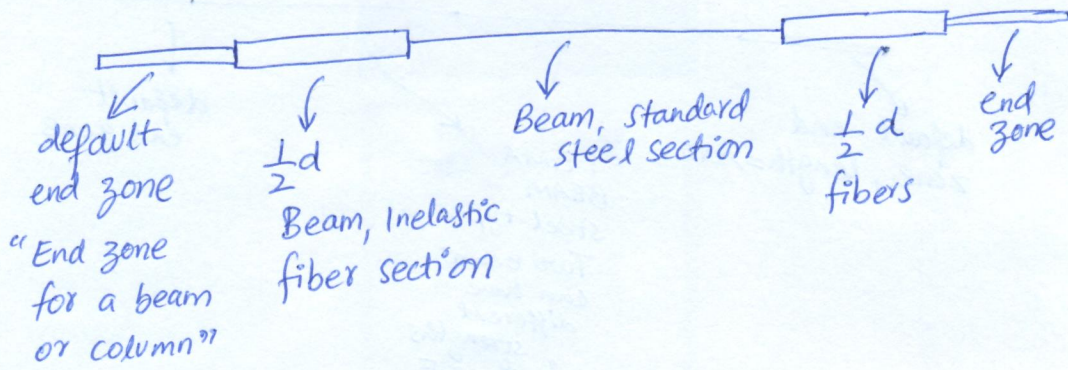 default
end zone
"End zone
for a beam
or column"
½d
Beam, Inelastic
fiber section
Beam, standard
steel section
½ d
fibers
end
zone